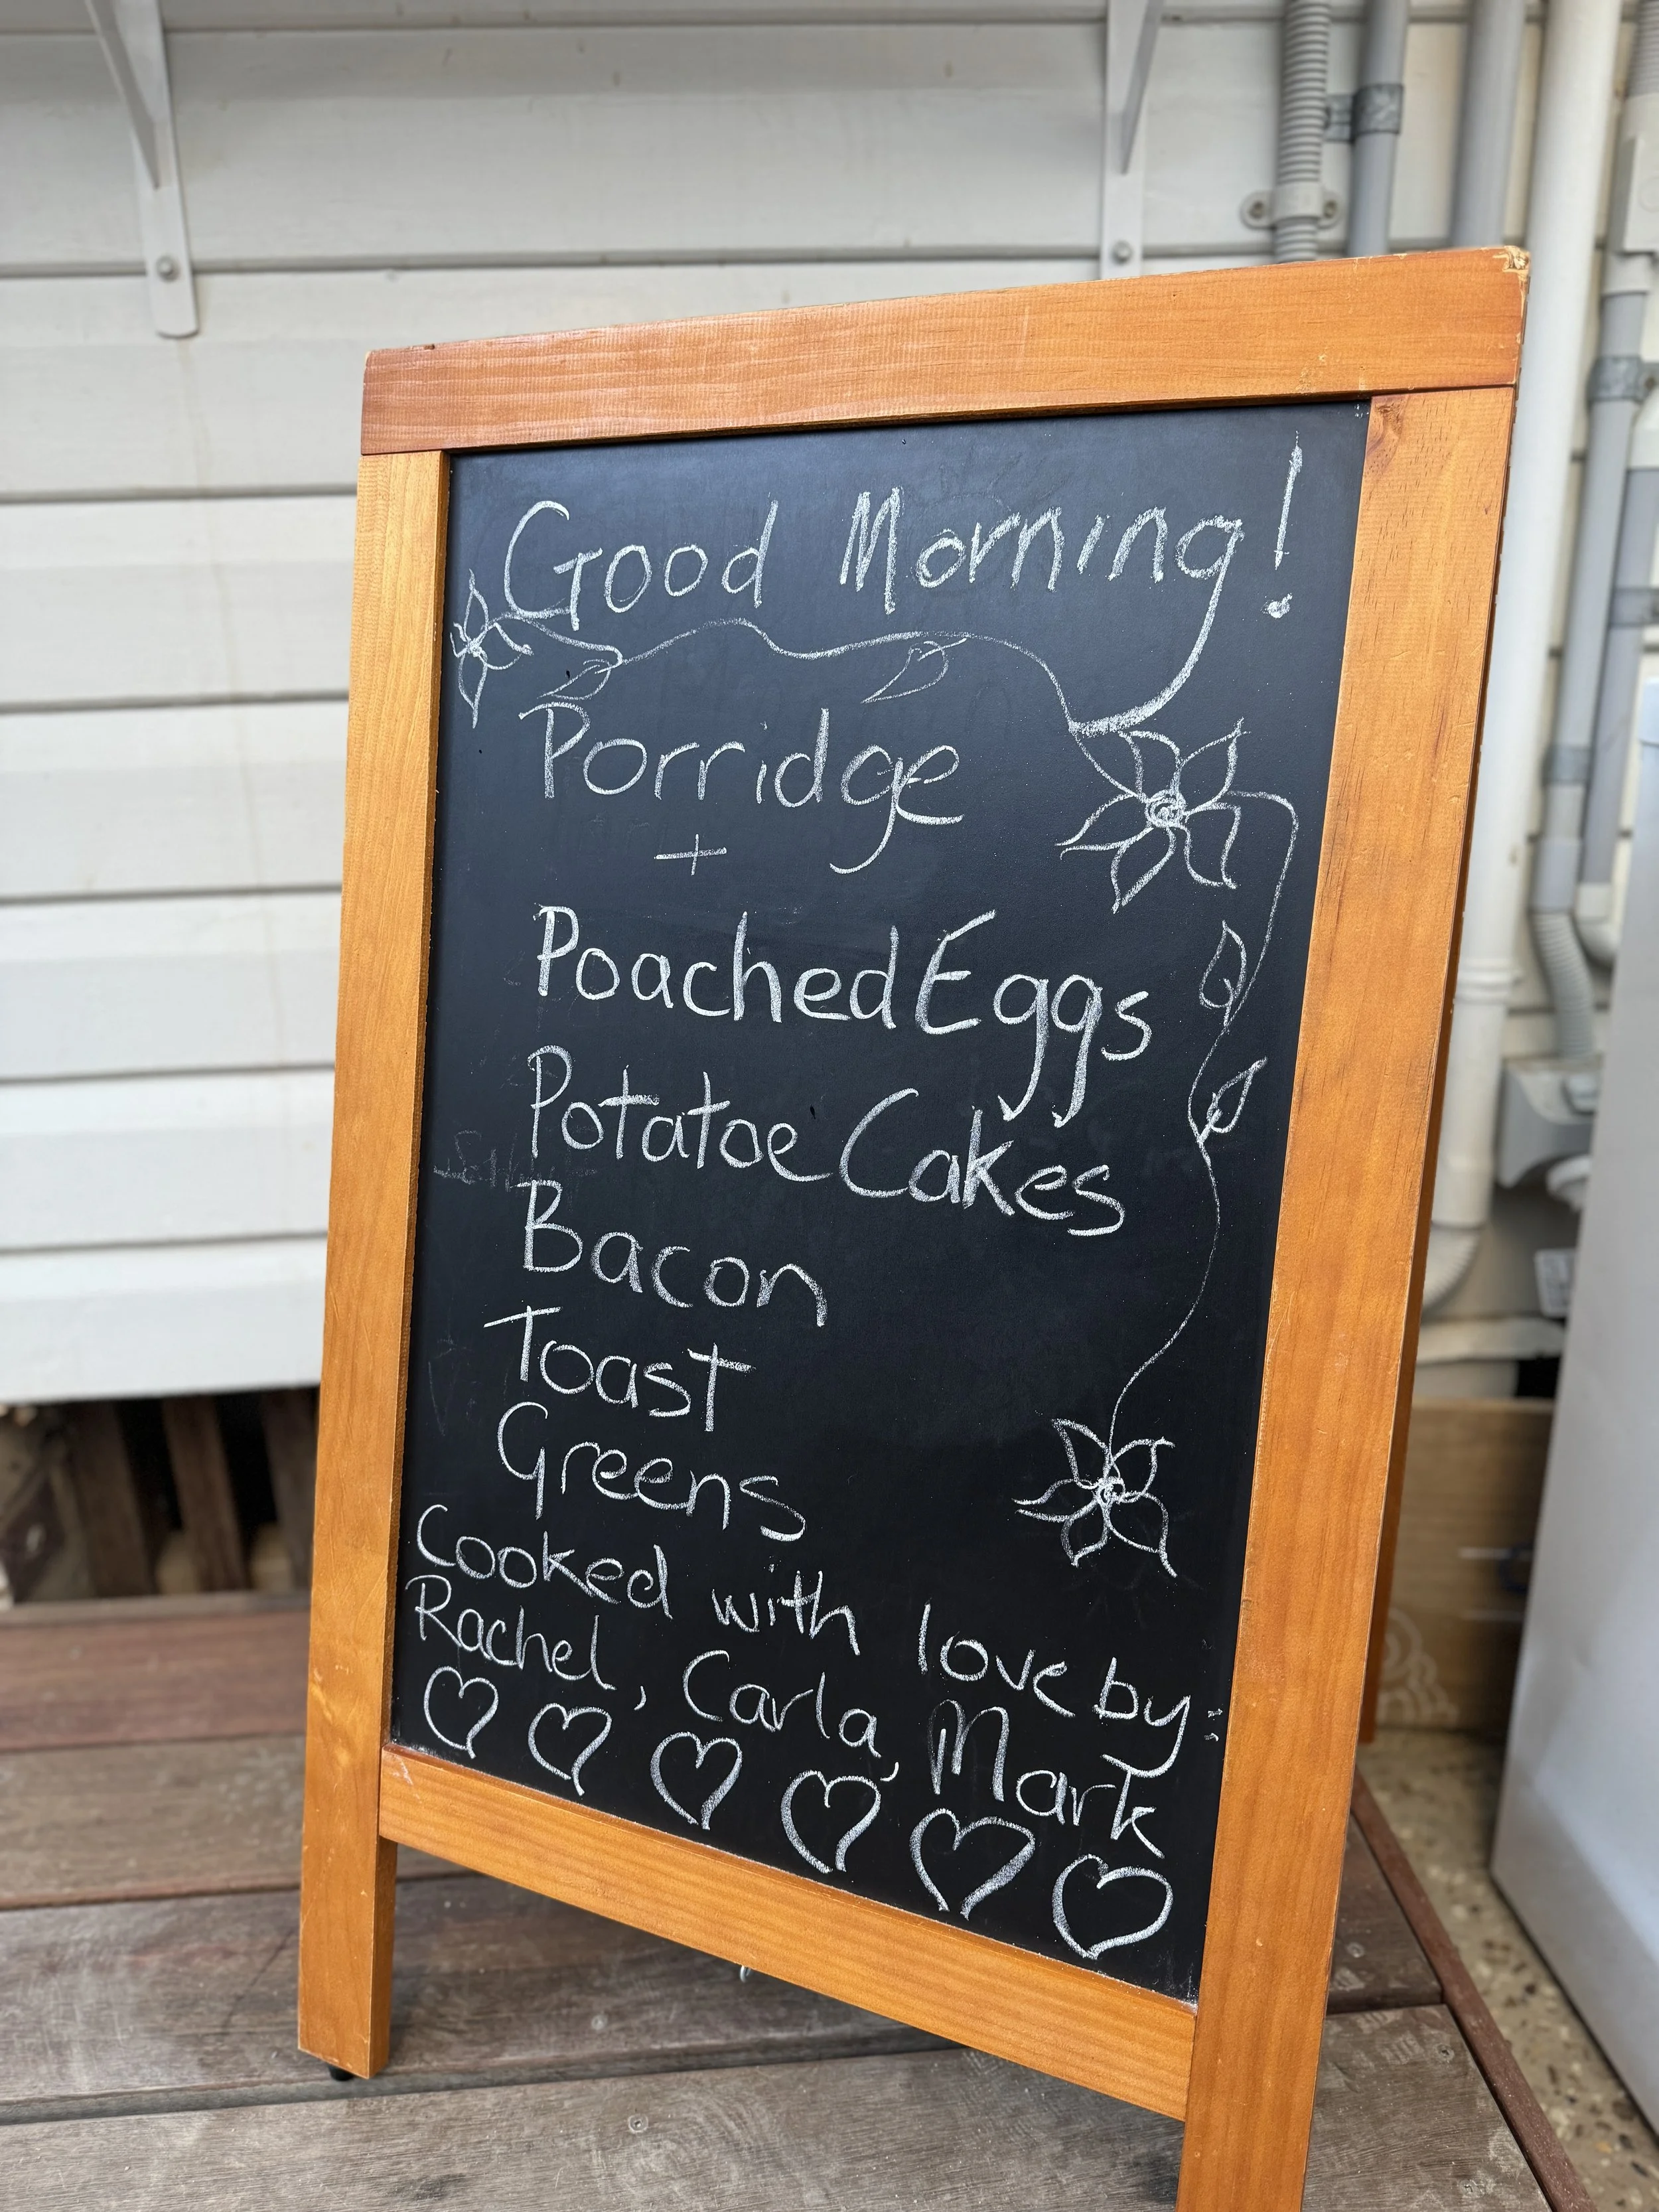 Good Morning!
Porridge
+
Poached Eggs
Potatoe Cakes
Bacon
Toast
Greens
Cooked with love by:
Rachel, Carla, Mark